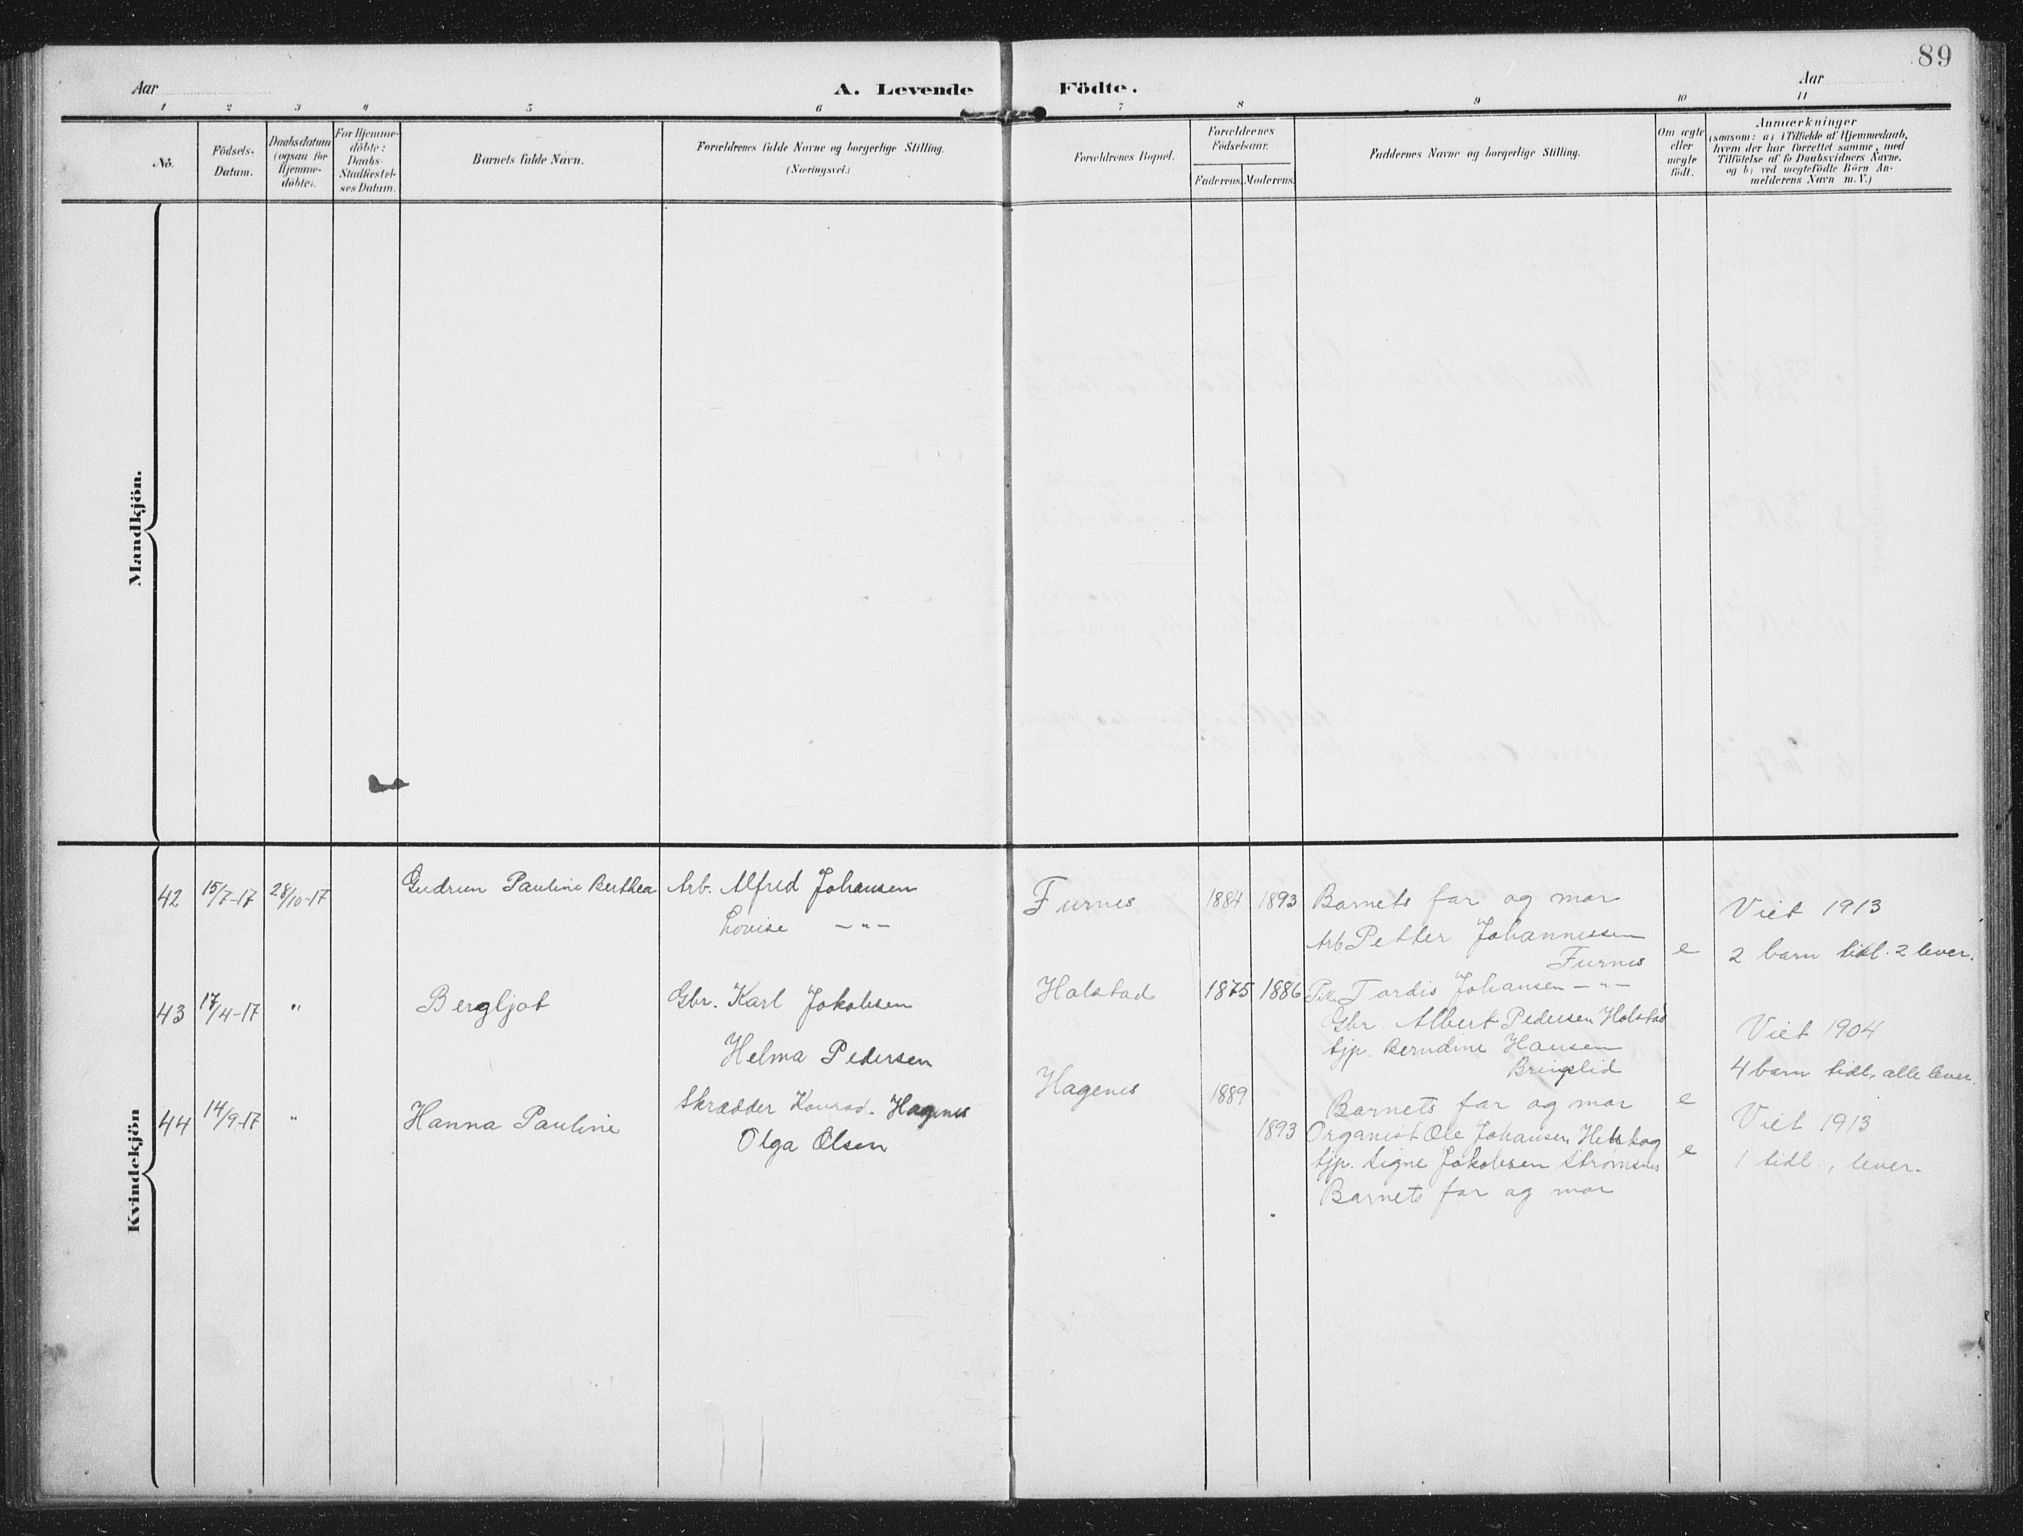 89
Aar
A. Levende
Födte.
Aar
1 2 3 4 5 6 7 8 9 10 11
No.
Födsels-
Datum.
Daabsdatum
(ogsaa for
Hjemme-
döbte).
For Hjemme-
döbte:
Daabs-
Stadfæstel-
ses Datum.
Barnets fulde Navn.
Forældrenes fulde Navne og borgerlige Stilling.
(Næringsvei.)
Forældrenes Bopæl.
Forældrenes
Födselsaar.
Faderens. Moderens.
Faddernes Navne og borgerlige Stilling.
Om ægte
eller
uægte
födt.
Anmærkninger
(saasom: a) i Tilfælde af Hjemmedaab,
hvem der har forrettet samme, med
Tilföielse af to Daabsvidners Navne,
og b) ved uægtefödte Börn An-
melderens Navn m. V.)
Mandkjön.
Kvindekjön
42 15/7-17 28/10-17 Gudrun Pauline Berthea Arb. Alfred Johansen
Lovise —"—
Furnes 1884 1893 Barnets far og mor
Arb. Petter Johannessen
Furnes
e
Viet 1913
2 barn tidl. 2 lever.
43 17/4-17 " Bergljot Gbr. Karl Jakobsen
Helma Pedersen
Holstad 1875 1886 Pike Tordis Johansen —"—
Gbr. Albert Pedersen Holstad
tjp. Berndine Hansen
Bringslid
Barnets far og mor
e
Viet 1904
4 barn tidl., alle lever.
44 14/9-17 " Hanna Pauline Skrædder Konrad Hagenes
Olga Olsen
Hagenes 1889
1893 Organist Ole Johansen
tjp. Signe Jakobsen Strømsnes
Barnets far og mor
e
Viet 1913
1 tidl., lever.